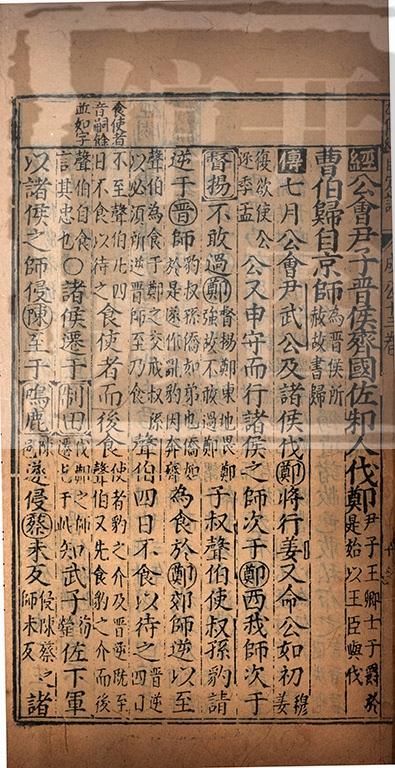 食使者
音嗣餘
並如字
經公會尹子晉侯齊國佐邾人伐鄭尹子王卿士子爵於是始以王臣與伐
曹伯歸自京師為晉侯所赦故書歸
傳七月公會尹武公及諸侯伐鄭將行姜又命公如初穆姜
復欲使公逐季孟公又申守而行諸侯之師次于鄭西我師次于
督揚不敢過鄭督揚鄭東地畏鄭強故不敢過鄭子叔聲伯使叔孫豹請
逆于晉師叔孫豹僑如弟也僑如於是遂作亂豹因奔齊為食於鄭郊師逆以至
聲伯為食于鄭之交戒叔孫以必須所逆晉師至乃食聲伯四日不食以待之晉逆四日
不至聲伯比四日不食以待之食使者而後食使者豹之介及晉逆既至聲伯又先食豹之介而後
聲伯自食言其忠也○諸侯遷于制田伐鄭之師遷屯于此知武子荀罃佐下軍
以諸侯之師侵陳至于鳴鹿遂侵蔡未反侵陳蔡之師未反諸